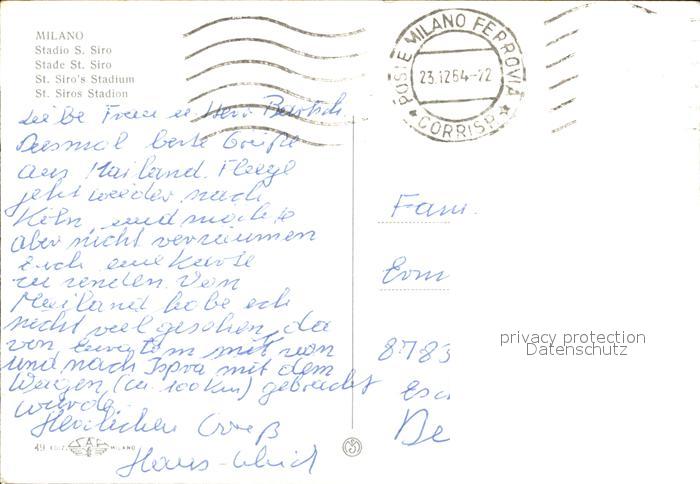 MILANO
Stadio S. Siro
Stade St. Siro
St. Siro's Stadium
St. Siros Stadion
POSTE MILANO FERROVIA
23.1264-22
CORRISP.
Liebe Frau u Herr
Diesmal beste Grüße
aus Mailand. Fliege
jetzt wieder nach
Köln, und möchte
aber nicht versäumen
Euch eine Karte
zu senden. Von
Mailand habe ich
nicht viel gesehen, da
von
und nach Ispra mit dem
Wagen, (ca. 100 km) gebracht
wurde.
Herzlichen Gruß
Hans-Ulrich
Fam.
8783
De
privacy protection
Datenschutz
49 EDIZ. SAF MILANO